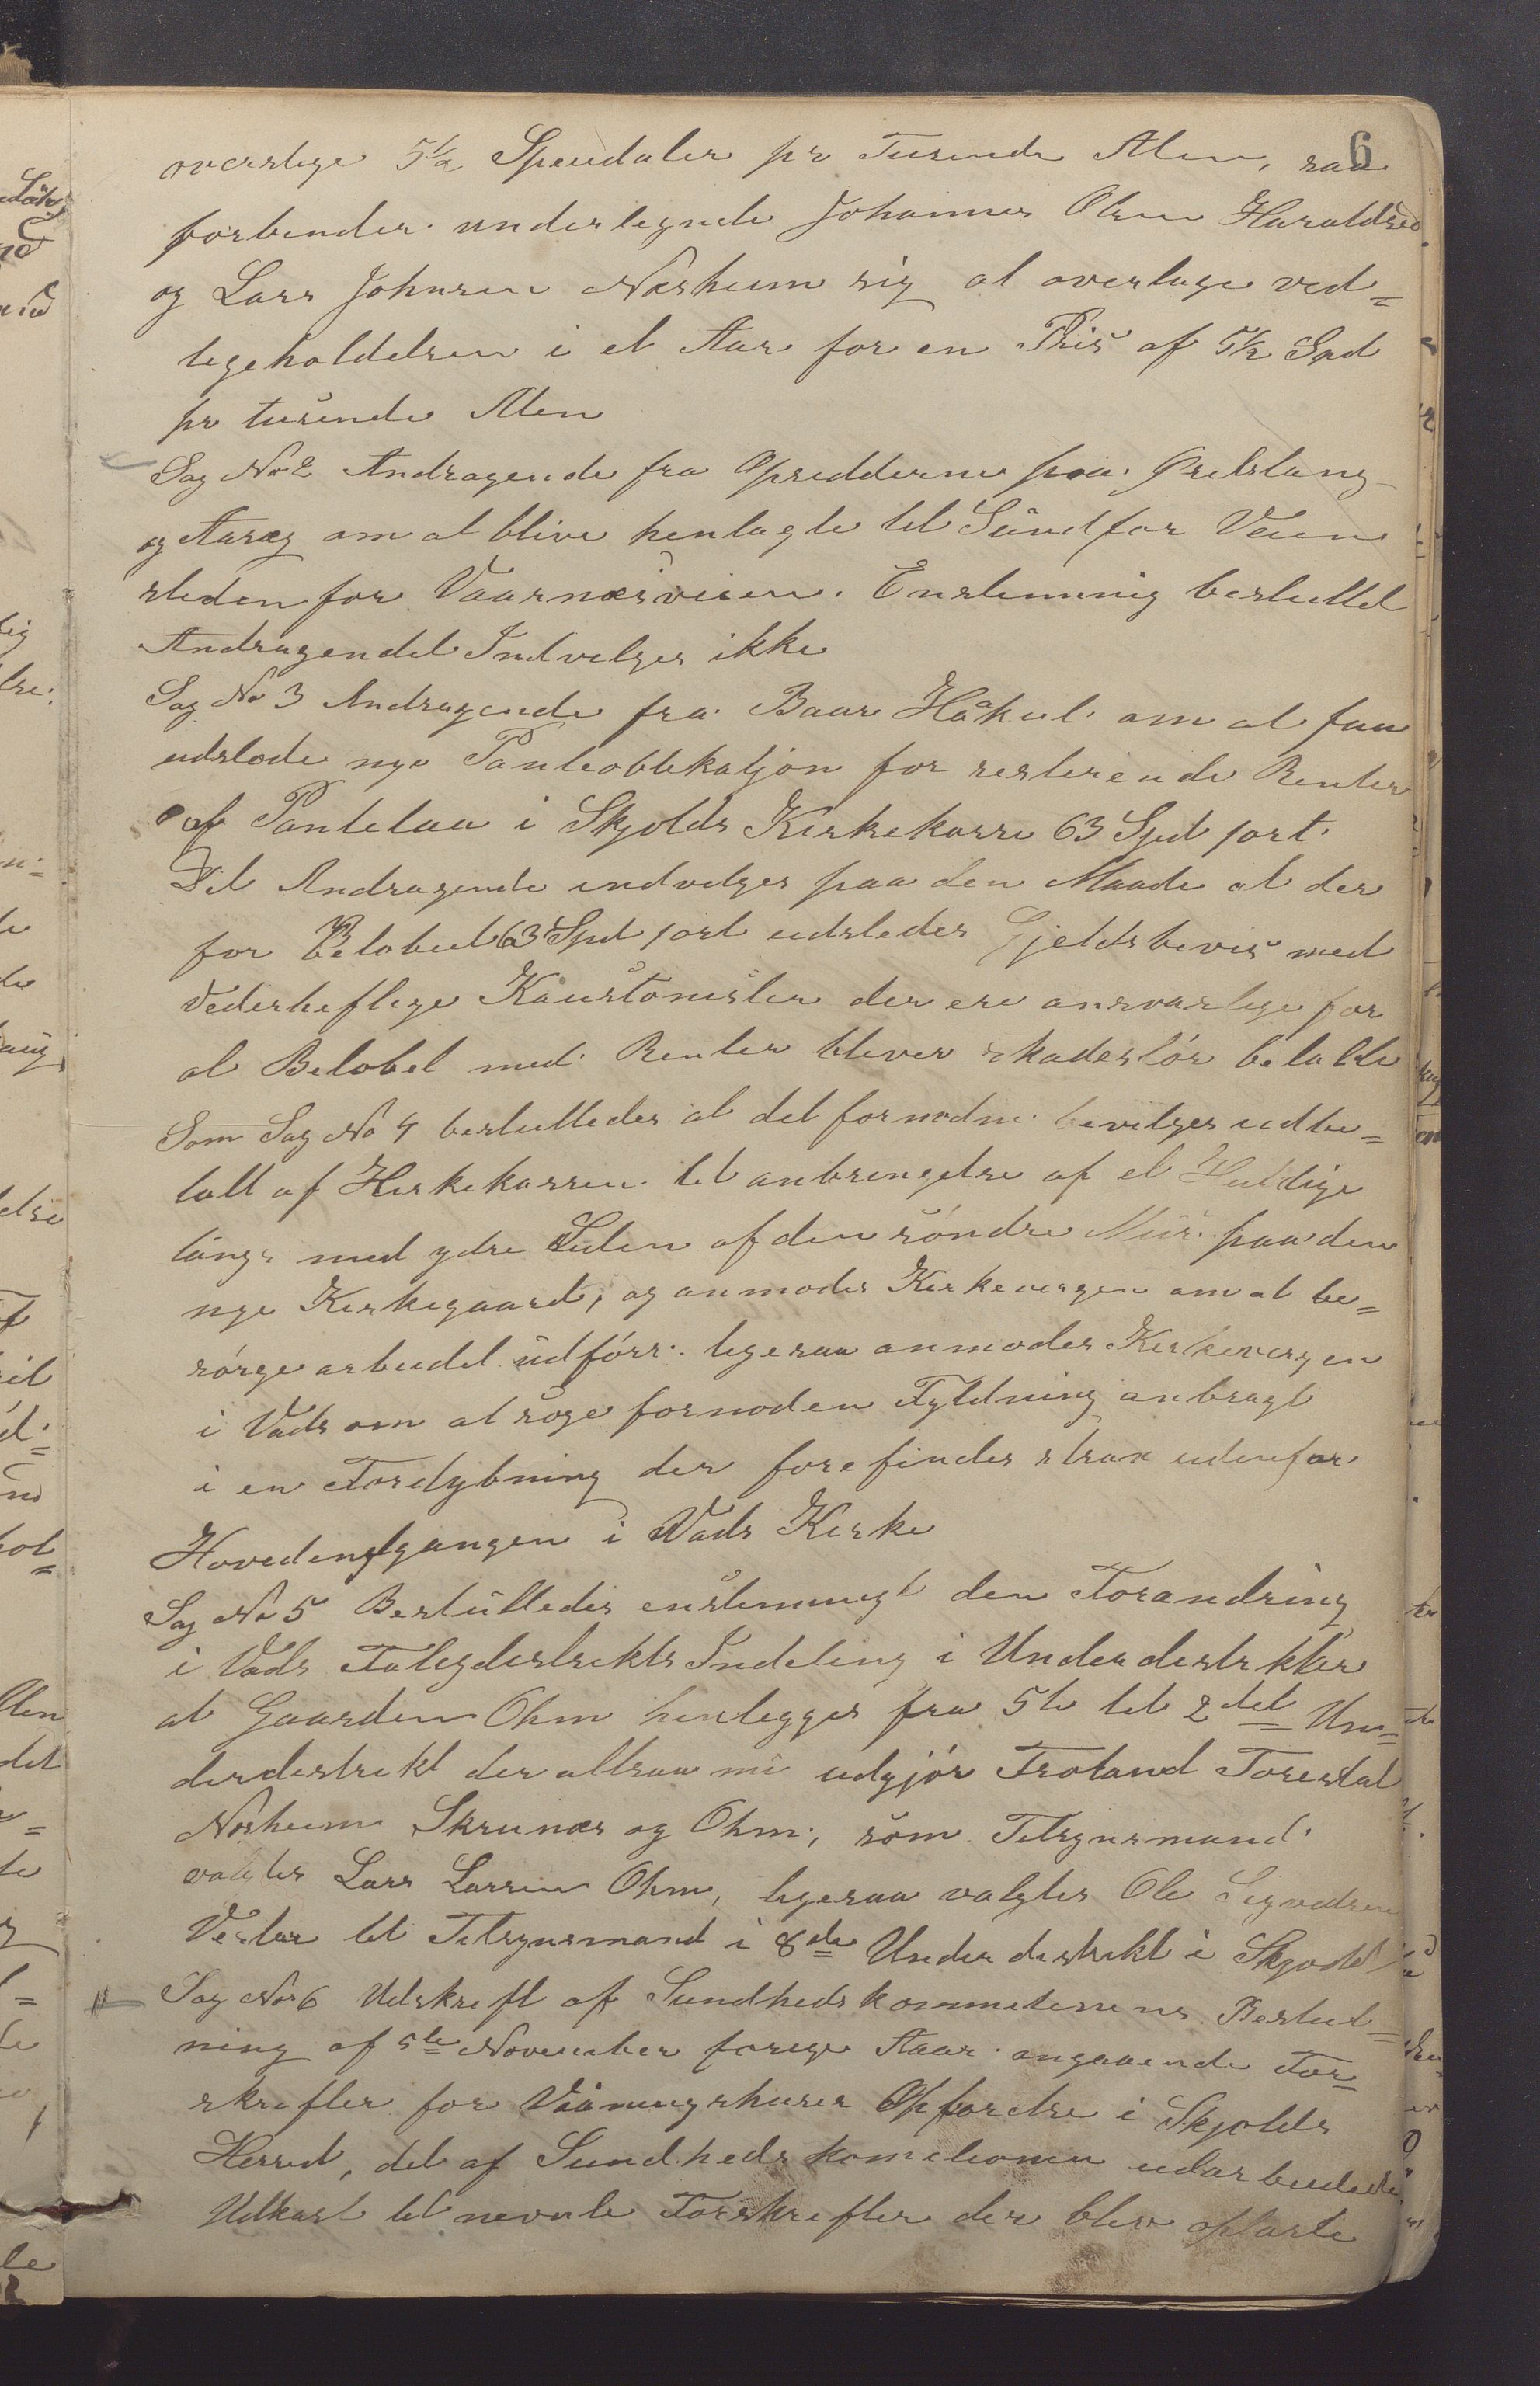 6
overslige 5½ Speudaler pr Tusende Alen, saa
forbinder undertegnede Johannes Olsen Haraldseid
og Lars Johnsen Nesheim sig at overtage ved=
ligeholdelsen i et Aar for en Pris af 5½ Spd
pr tusende Alen
Sag No 2 Andragende fra Opsidderne paa
og Aaræg om at blive henlagte til Sundfør Veien
steden for Vaarnæsveien. Enstemmig besluttet
Andragendet Indvelges ikke
Sag No 3 Andragende fra Baar Håakul om at faa
udstede nye Panteobbekatjon for resterende Renter
af Pantelaa i Skjolds Kirkekasse 63 Spd 1ort
Det Andragende indvelges paa den Maade at der
for Beløbet 63 Spd 1ort udstedes Gjeldsbevis med
Vederheftige Kaustonister der ere ansvarlige for
at Belobet med Renter bliver skadesløs betalte
Som Sag No 4 besluttedes at det fornødne bevilges udbe=
talt af Kirkekassen til anbringelse af et
langs med ydre Siden af den søndre Mur paa den
nye Kirkegaard, og anmodes Kirkevergen om at be=
sørge arbeidet udført. ligesaa anmodes Kirkevergen
i Vads om at søge fornoden Fyldning anbragt
i en Fordybning der forefindes strax udenfor
Hovedindgangen i Vads Kirke
Sag No 5 Besluttedes enstemmigt den Forandring
i Vads Fatigdistrikts Indeling i Underdistrikter
at Gaarden Ohm henlegges fra 5te til 2det Un=
derdistrikt der altsaa nu udgjør Frøland Forestal
Nesheim Skrunæs og Ohm, som Tilsynsmand
valgtes Lars Larsen Ohm, ligesaa valgtes Ole Sigvedsen
Vestbø til Tilsynsmand i 8de Underdistrikt i Skjold
Sag No 6 Udskrift af Sundhedskommisjonens Beslut=
ning af 5te November forige Aar angaaende For=
skrifter for Vaaningshuses Opførelse i Skjolds
Herred, det af Sundhedskomisionen udarbeidede
Udkast til nevnte Forskrifter der blev oplæste